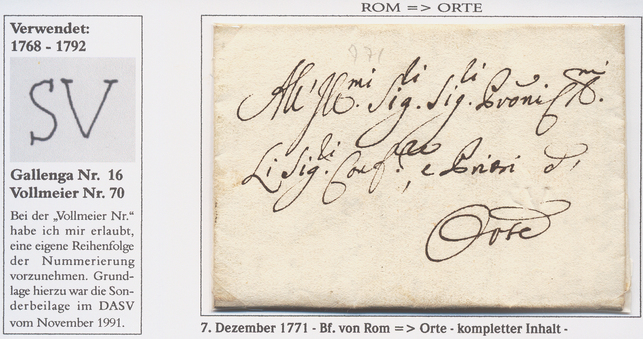 ROM => ORTE
Verwendet:
1768 - 1792
SV
Gallenga Nr. 16
Vollmeier Nr. 70
Bei der „Vollmeier Nr.“
habe ich mir erlaubt,
eine eigene Reihenfolge
der Nummerierung
vorzunehmen. Grund-
lage hierzu war die Son-
derbeilage im DASV
vom November 1991.
771
All' Ill.mi Sig.li Sig.li Prōni
Li Sig.li e Priori d'
Orte
7. Dezember 1771 - Bf. von Rom => Orte - kompletter Inhalt -